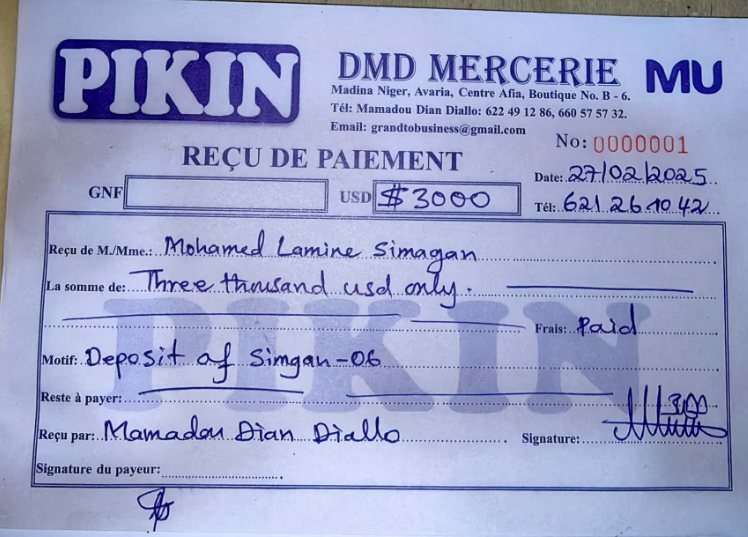 PIKIN
DMD MERCERIE MU
Madina Niger, Avaria, Centre Afia, Boutique No. B - 6.
Tél: Mamadou Dian Diallo: 622 49 12 86, 660 57 57 32.
Email: grandtobusiness@gmail.com
No: 0000001
REÇU DE PAIEMENT
Date: 27/02/2025
GNF USD $3000
Tél: 621 26 10 42
Reçu de M./Mme.: Mohamed Lamine Simagan
La somme de: Three thousand usd only.
PIKIN
Frais: Paid
Motif: Deposit of Simgan-06
Reste à payer:
Reçu par: Mamadou Dian Diallo Signature:
Signature du payeur: